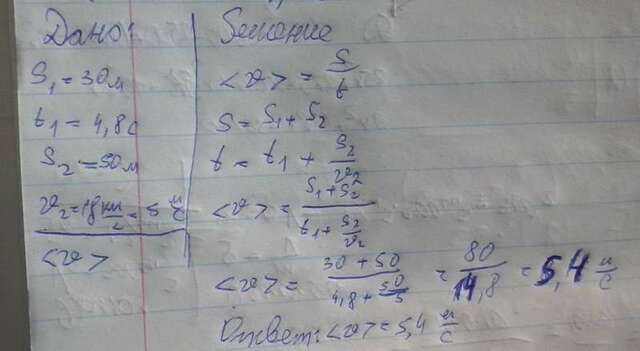 Дано:
S₁ = 30м
t₁ = 4,8с
S₂ = 50м
υ₂ = 18 км/ч = 5 м/с
<υ>
Решение
<υ> = S/t
S = S₁ + S₂
t = t₁ + S₂/υ₂
<υ> = (S₁ + S₂)/(t₁ + S₂/υ₂)
<υ> = (30 + 50)/(4,8 + 50/5) = 80/14,8 = 5,4 м/с
Ответ: <υ> = 5,4 м/с